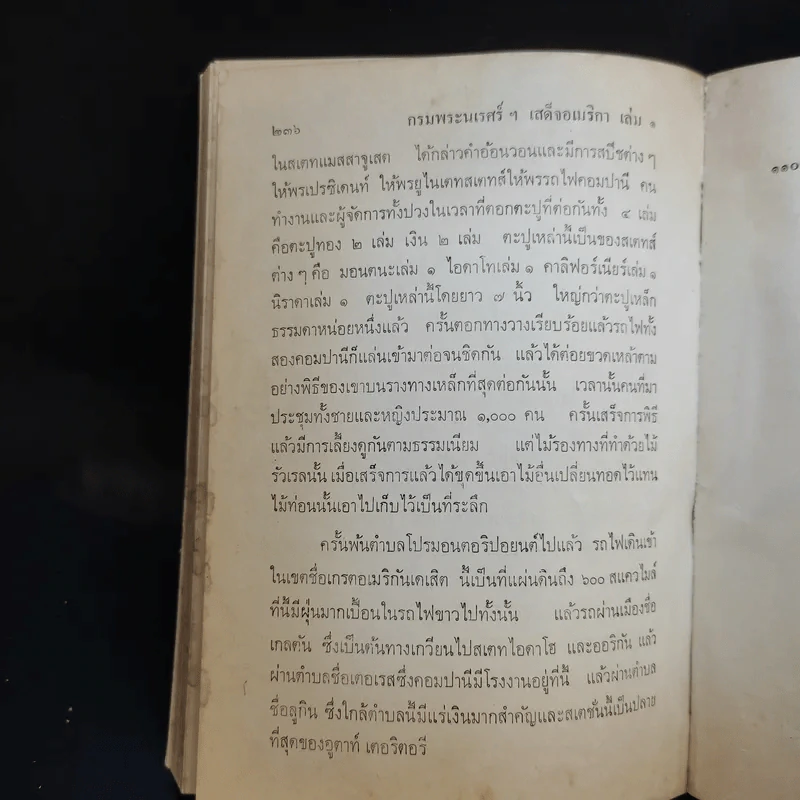 ๒๓๖
กรมพระนเรศร์ ฯ เสด็จอเมริกา เล่ม ๑
ในสเตทแมสสาจูเสต ได้กล่าวคำอ้อนวอนและมีการสปีชต่าง ๆ
ให้พรเปรซิเดนท์ ให้พรยูไนเตทสเตทส์ให้พรรถไฟคอมปานี คน
ทำงานและผู้จัดการทั้งปวงในเวลาที่ตอกตะปูที่ต่อกันทั้ง ๔ เล่ม
คือตะปูทอง ๒ เล่ม เงิน ๒ เล่ม ตะปูเหล่านี้เป็นของสเตทส์
ต่าง ๆ คือ มอนตนะเล่ม ๑ ไอดาโทเล่ม ๑ คาลิฟอร์เนียร์เล่ม ๑
นิราดาเล่ม ๑ ตะปูเหล่านี้โดยยาว ๗ นิ้ว ใหญ่กว่าตะปูเหล็ก
ธรรมดาหน่อยหนึ่งแล้ว ครั้นตอกทางวางเรียบร้อยแล้วรถไฟทั้ง
สองคอมปานีก็แล่นเข้ามาต่อจนชิดกัน แล้วได้ต่อยขวดเหล้าตาม
อย่างพิธีของเขาบนรางทางเหล็กที่สุดต่อกันนั้น เวลานั้นคนที่มา
ประชุมทั้งชายและหญิงประมาณ ๑,๐๐๐ คน ครั้นเสร็จการพิธี
แล้วมีการเลี้ยงดูกันตามธรรมเนียม แต่ไม้รองทางที่ทำด้วยไม้
รัวเรลนั้น เมื่อเสร็จการแล้วได้ขุดขึ้นเอาไม้อื่นเปลี่ยนทอดไว้แทน
ไม้ท่อนนั้นเอาไปเก็บไว้เป็นที่ระลึก
ครั้นพ้นตำบลโปรมอนตอริปอยนต์ไปแล้ว รถไฟเดินเข้า
ในเขตชื่อเกรตอเมริกันเดเสิต นี้เป็นที่แผ่นดินถึง ๖๐๐ สแควไมล์
ที่นี้มีฝุ่นมากเปื้อนในรถไฟขาวไปทั้งนั้น แล้วรถผ่านเมืองชื่อ
เกลตัน ซึ่งเป็นต้นทางเกวียนไปสเตทไอดาโฮ และออริกัน แล้ว
ผ่านตำบลชื่อเตอเรสซึ่งคอมปานีมีโรงงานอยู่ที่นี้ แล้วผ่านตำบล
ชื่อลูกิน ซึ่งใกล้ตำบลนี้มีแร่เงินมากสำคัญและสเตชั่นนี้เป็นปลาย
ที่สุดของอูตาท์ เตอริตอรี
๑๑๐